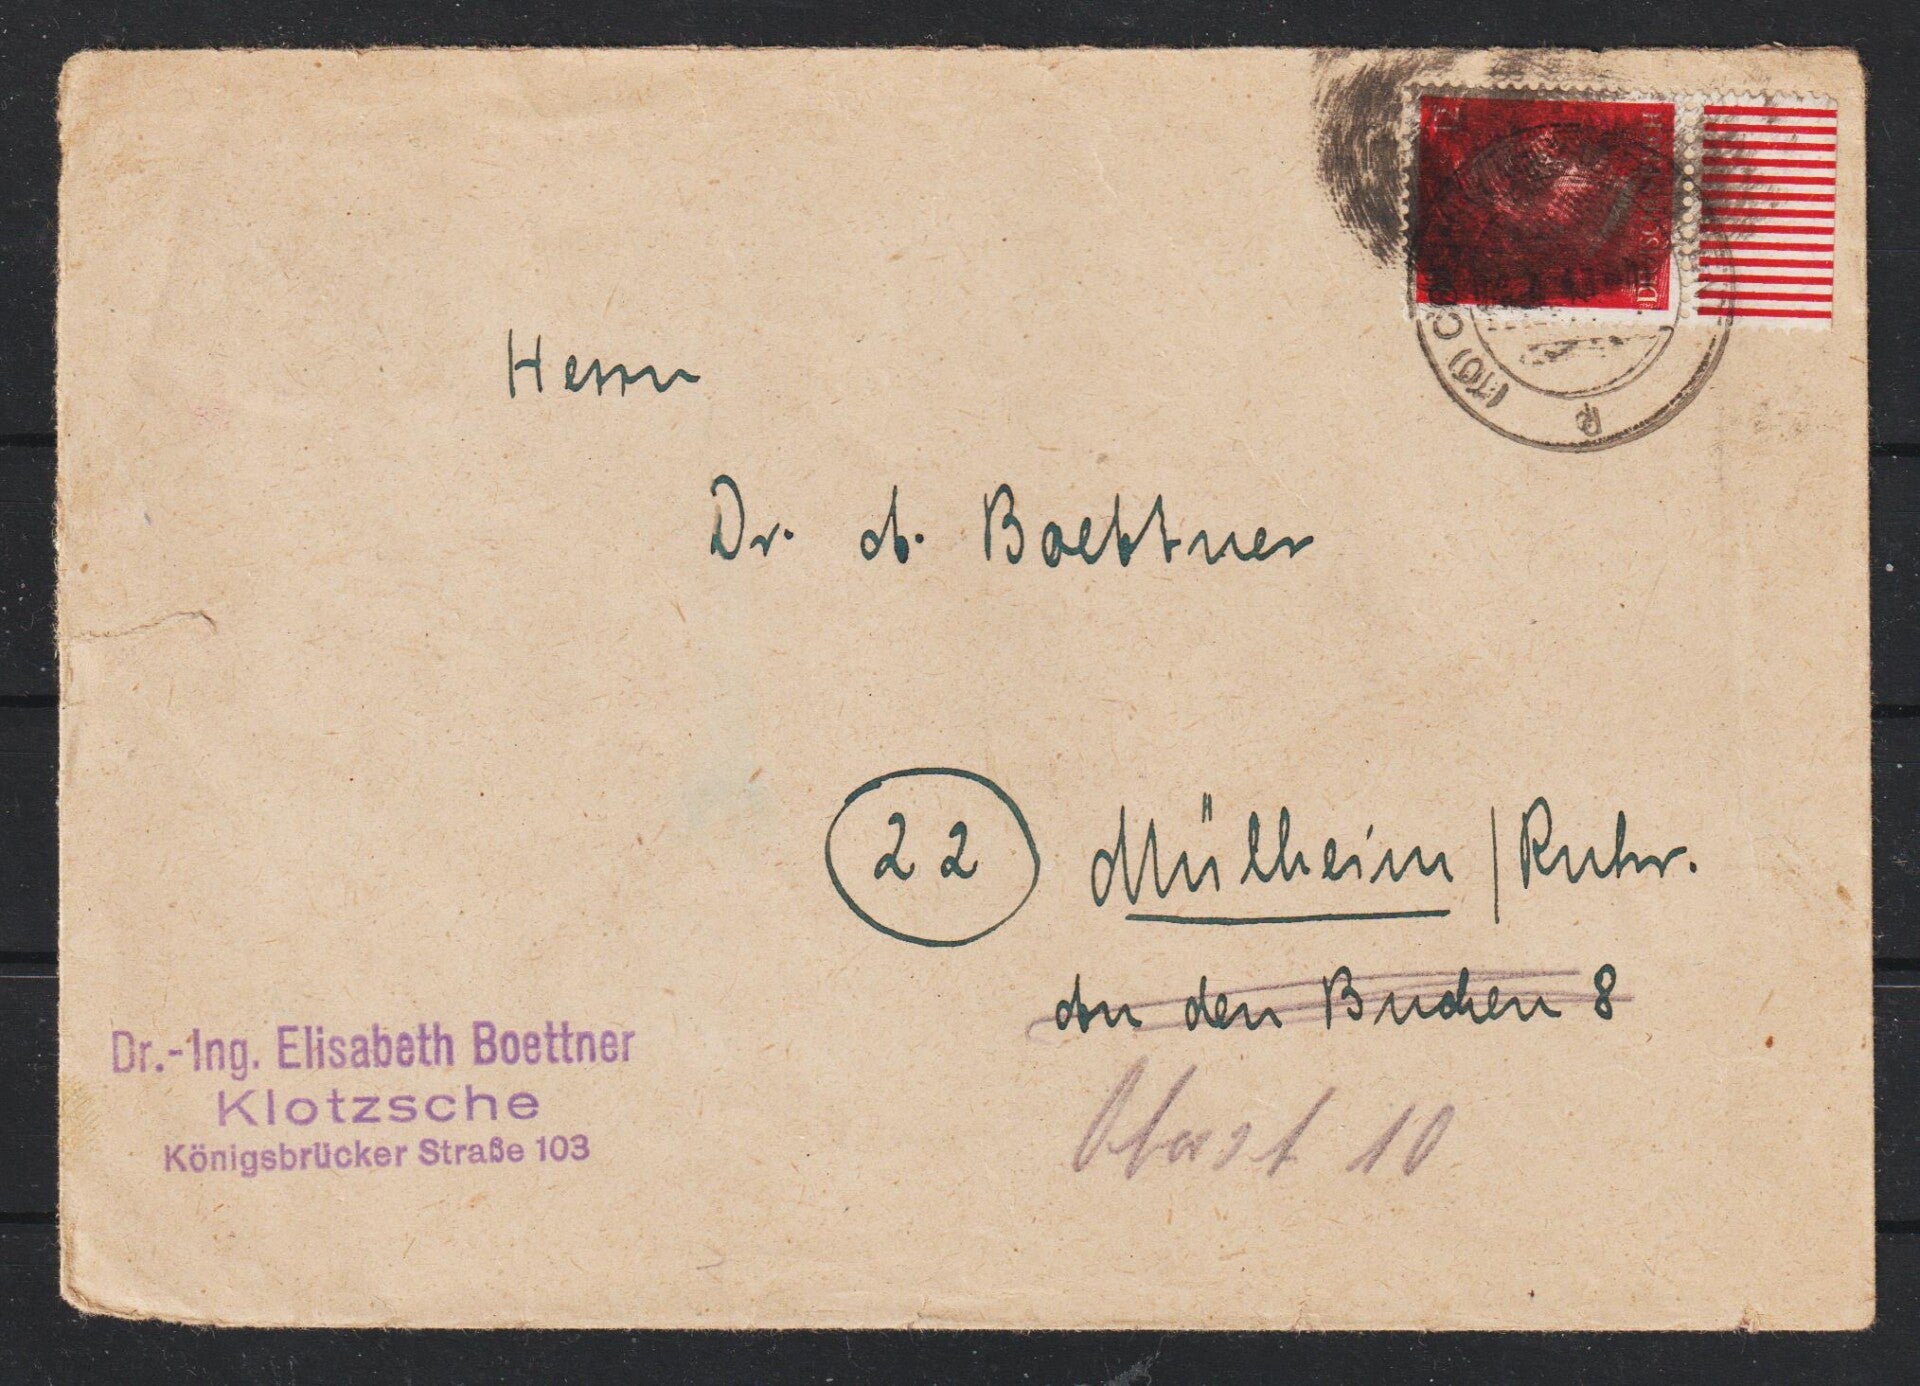 12
DEUTSCHES REICH
(10)
Herrn
Dr. A. Boettner
22 Mülheim/Ruhr.
An den Buchen 8
10
Dr.-Ing. Elisabeth Boettner
Klotzsche
Königsbrücker Straße 103